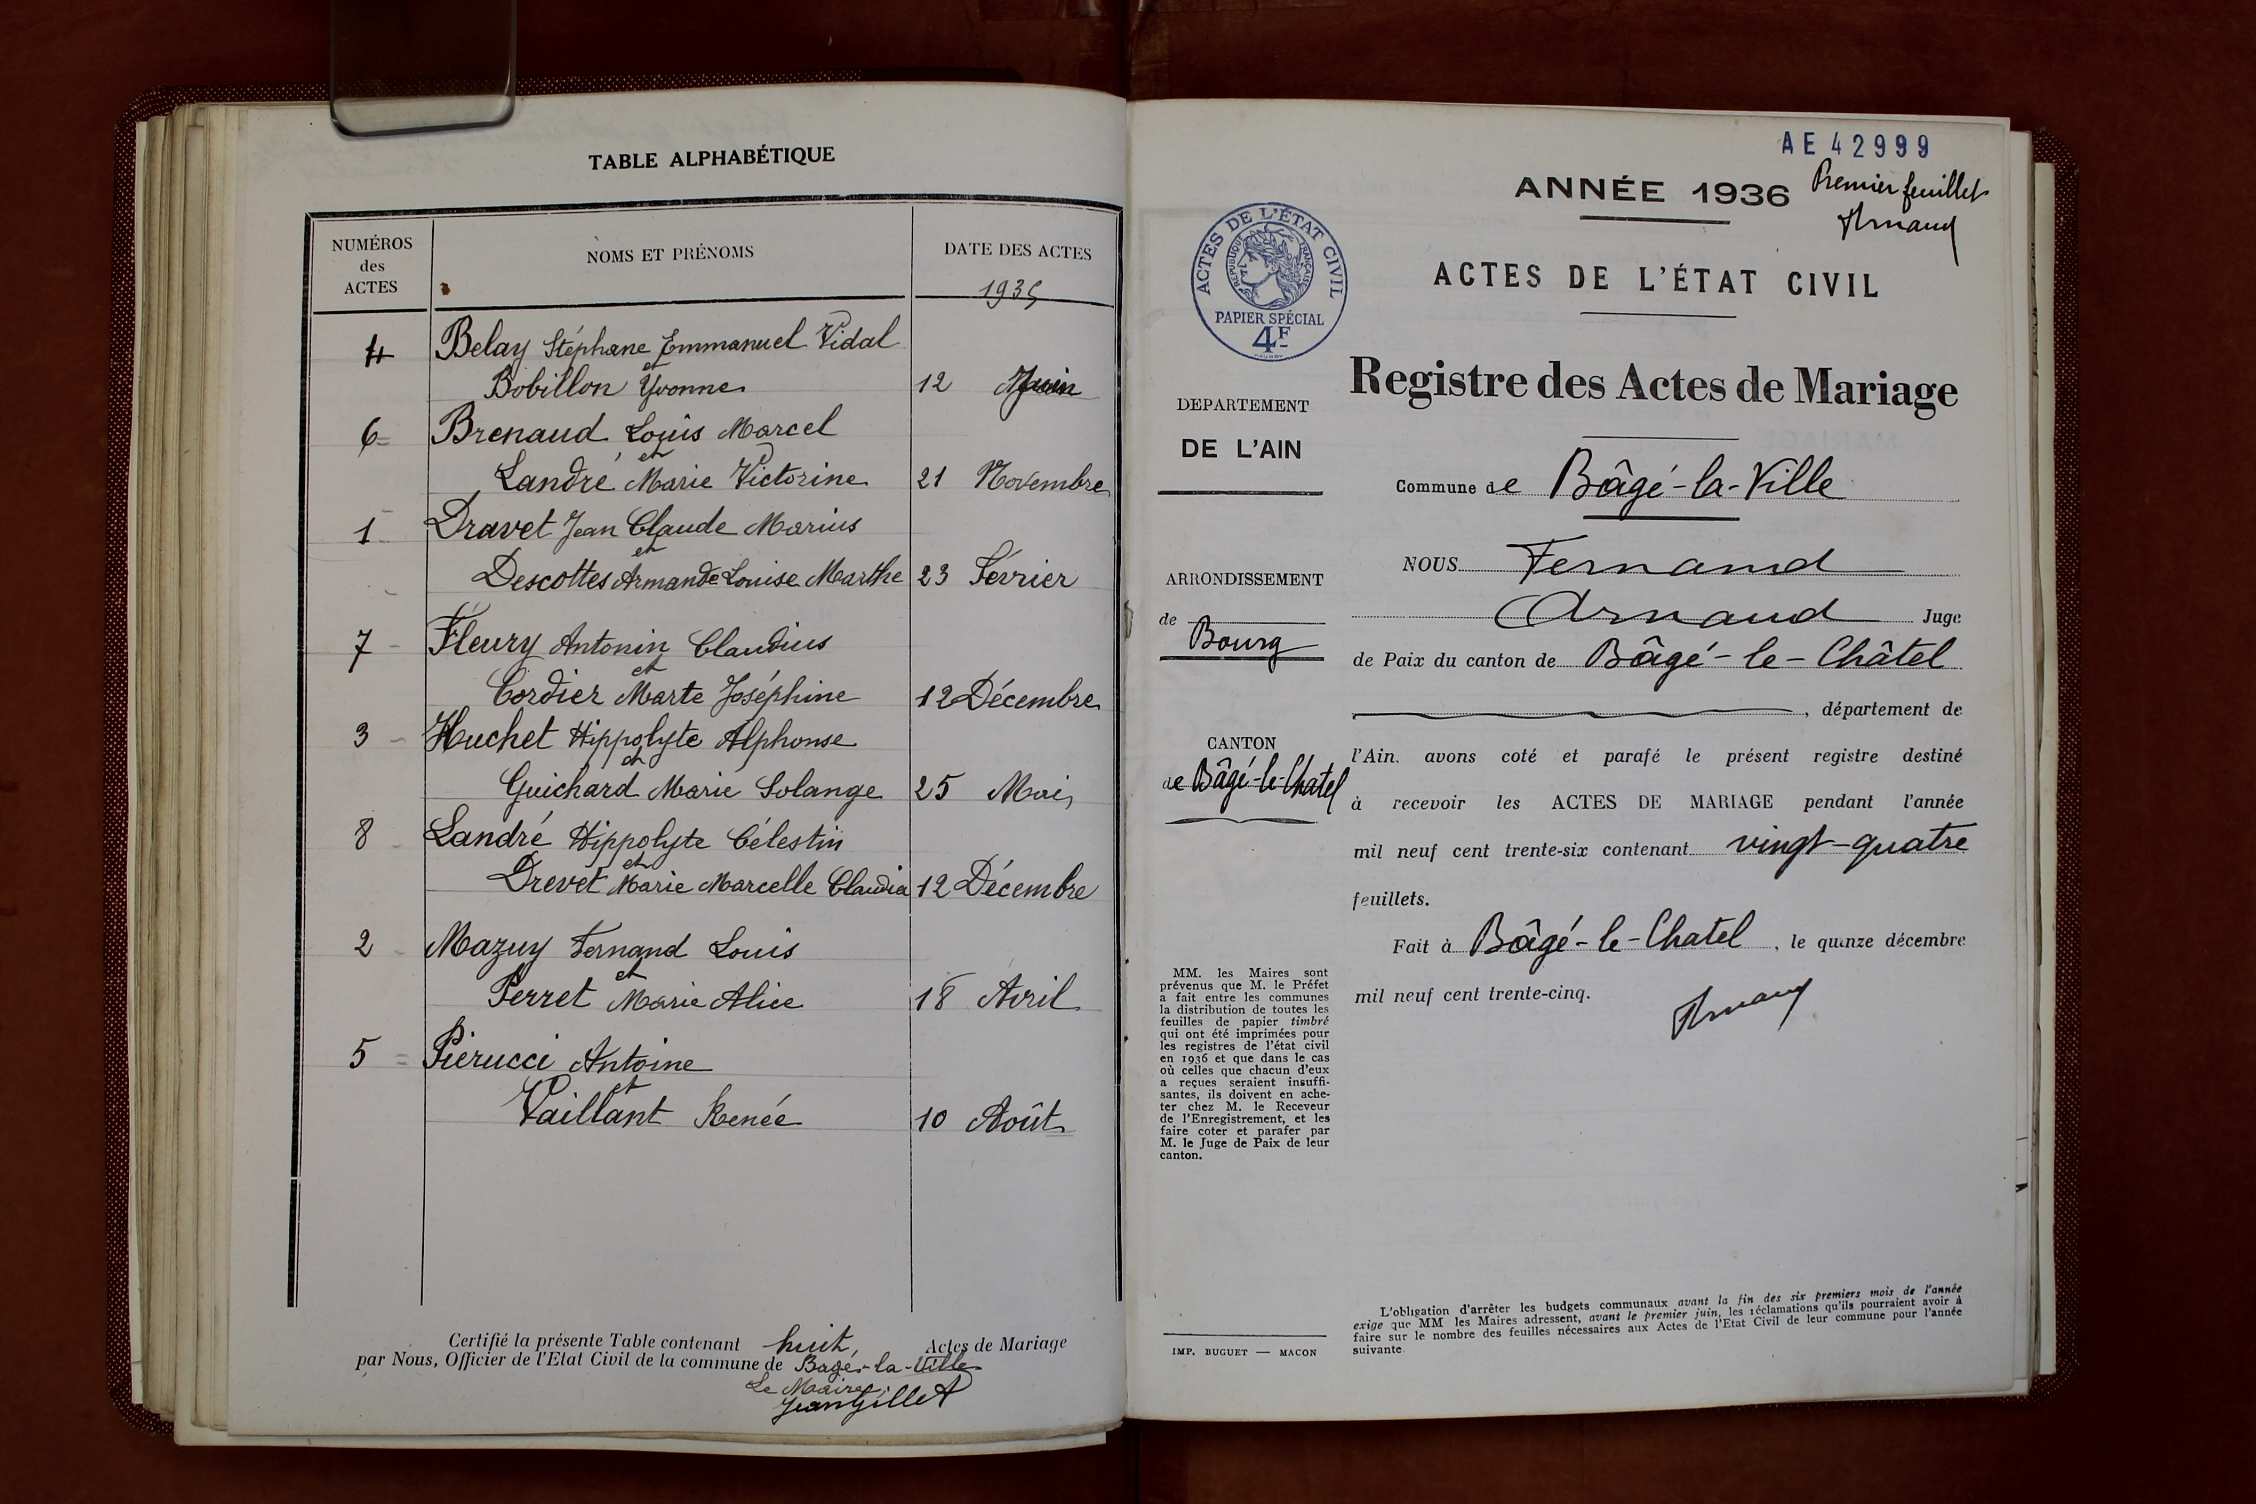 TABLE ALPHABÉTIQUE
NUMÉROS
des
ACTES
NOMS ET PRÉNOMS
DATE DES ACTES
1935
4 Belay Stéphane Emmanuel Vidal
et
Bobillon Yvonne 12 Juin
6 Brenaud Louis Marcel
et
Landré Marie Victorine 21 Novembre
1 Dravet Jean Claude Marius
et
Descottes Armande Louise Marthe 23 Février
7 Fleury Antonin Claudius
et
Cordier Marte Joséphine 12 Décembre
3 Huchet Hippolyte Alphonse
et
Guichard Marie Solange 25 Mai
8 Landré Hippolyte Célestin
et
Drevet Marie Marcelle Claudia 12 Décembre
2 Mazuy Fernand Louis
et
Perret Marie Alice 18 Avril
5 Pierucci Antoine
et
Vaillant Renée 10 Août
Certifié la présente Table contenant huit, Actes de Mariage
par Nous, Officier de l'Etat Civil de la commune de Bagé-la-Ville
Le Maire,
Jean Gillet
AE 42999
ANNÉE 1936
Premier feuillet
Arnaud
ACTES DE L'ÉTAT CIVIL
RÉPUBLIQUE FRANÇAISE
PAPIER SPÉCIAL
4F
ACTES DE L'ÉTAT CIVIL
Registre des Actes de Mariage
DEPARTEMENT
DE L'AIN
Commune de Bâgé-la-Ville
ARRONDISSEMENT
de
Bourg
NOUS Fernand
Arnaud Juge
de Paix du canton de Bâgé-le-Châtel
, département de
CANTON
de Bâgé-le-Chatel
l'Ain, avons coté et parafé le présent registre destiné
à recevoir les ACTES DE MARIAGE pendant l'année
mil neuf cent trente-six contenant vingt-quatre
feuillets.
Fait à Bâgé-le-Chatel, le quinze décembre
mil neuf cent trente-cinq.
Arnaud
MM. les Maires sont
prévenus que M. le Préfet
a fait entre les communes
la distribution de toutes les
feuilles de papier timbré
qui ont été imprimées pour
les registres de l'état civil
en 1936 et que dans le cas
où celles que chacun d'eux
a reçues seraient insuffi-
santes, ils doivent en ache-
ter chez M. le Receveur
de l'Enregistrement, et les
faire coter et parafer par
M. le Juge de Paix de leur
canton.
IMP. BUGUET — MACON
L'obligation d'arrêter les budgets communaux avant la fin des six premiers mois de l'année
exige que MM les Maires adressent, avant le premier juin, les réclamations qu'ils pourraient avoir à
faire sur le nombre des feuilles nécessaires aux Actes de l'Etat Civil de leur commune pour l'année
suivante